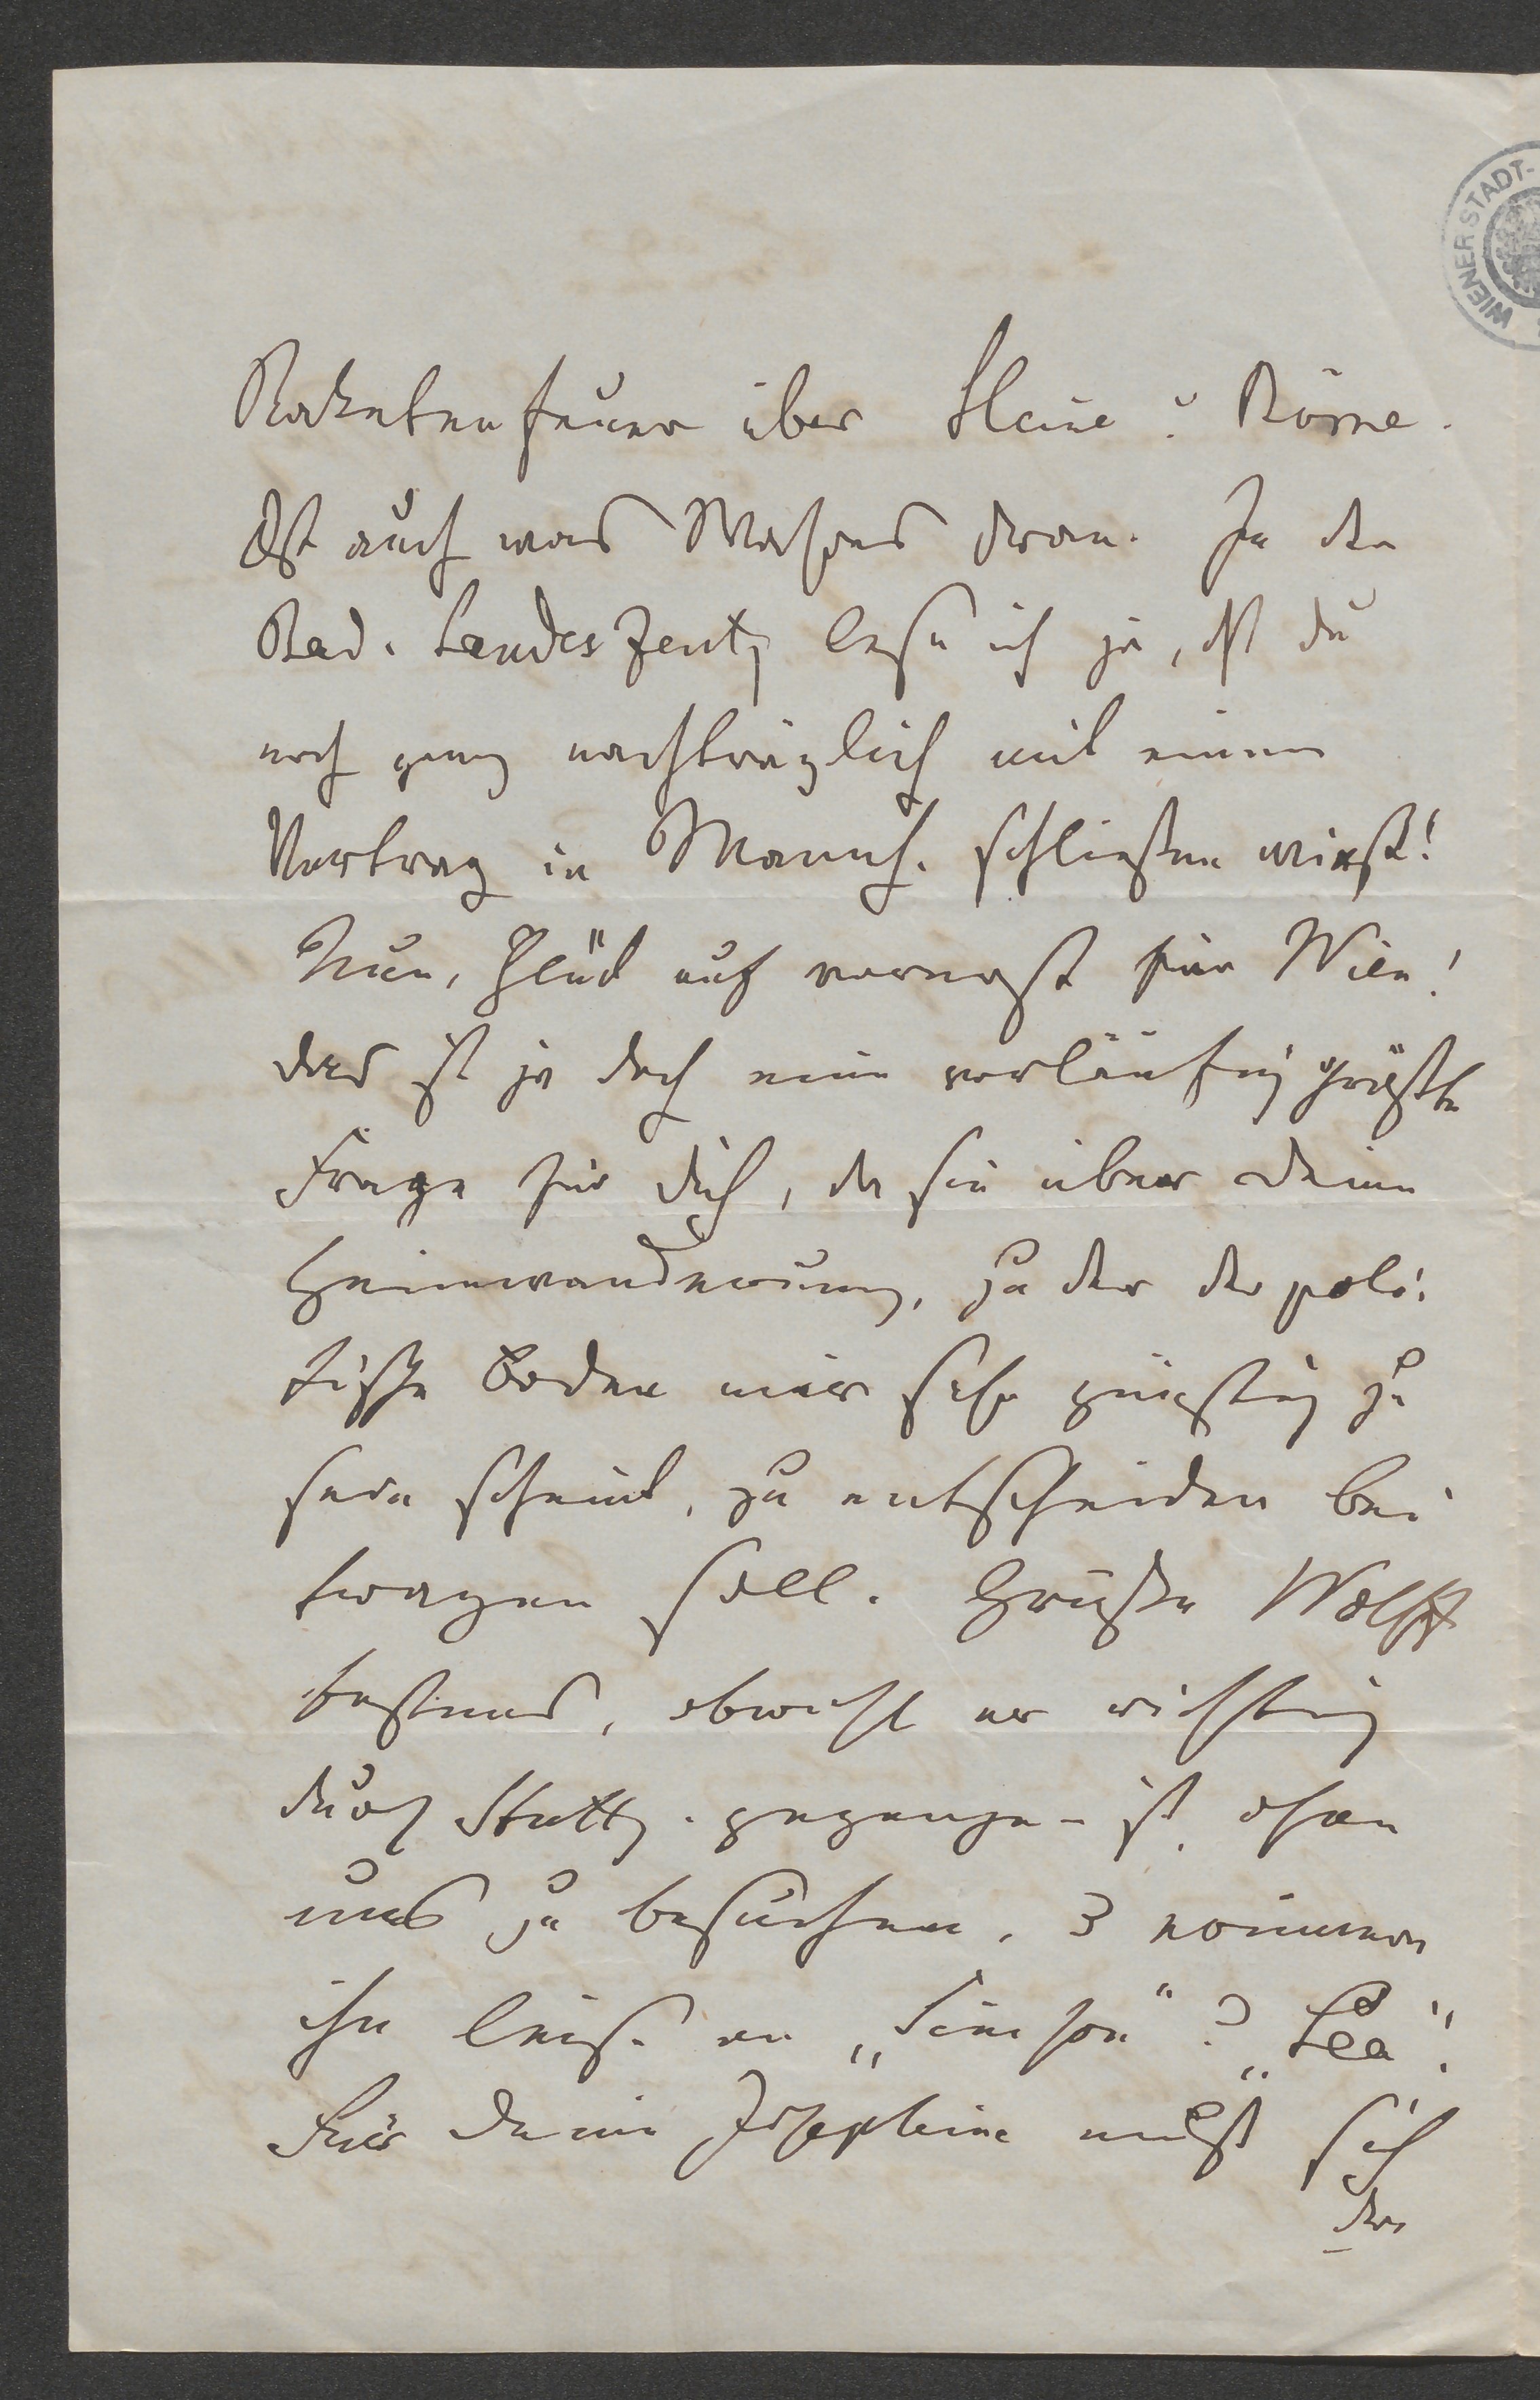 WIENER STADT-
Raketenfeuer über Heine u Börne.
Ist auch was Wahres dran. In der
Bad. Landeszeitg lese ich ja, dß du
noch ganz nachträglich mit einem
Vortrag in Mannh. schließen wirst!
Nun, Glück auf vorerst für Wien!
das ist ja doch eine vorläufig größte
Frage für dich, da sie über deine
Heimwanderung, zu der der poli:
tische Boden mir sehr günstig zu
sein scheint, zu entscheiden bei
tragen soll. Grüße Wolff
bestens, obwohl er richtig
durch Stuttg. gegangen ist, ohne
uns zu besuchen.
ihn leise an „Simson“ u „Lea“.
Für deine Josephine muß sich
der